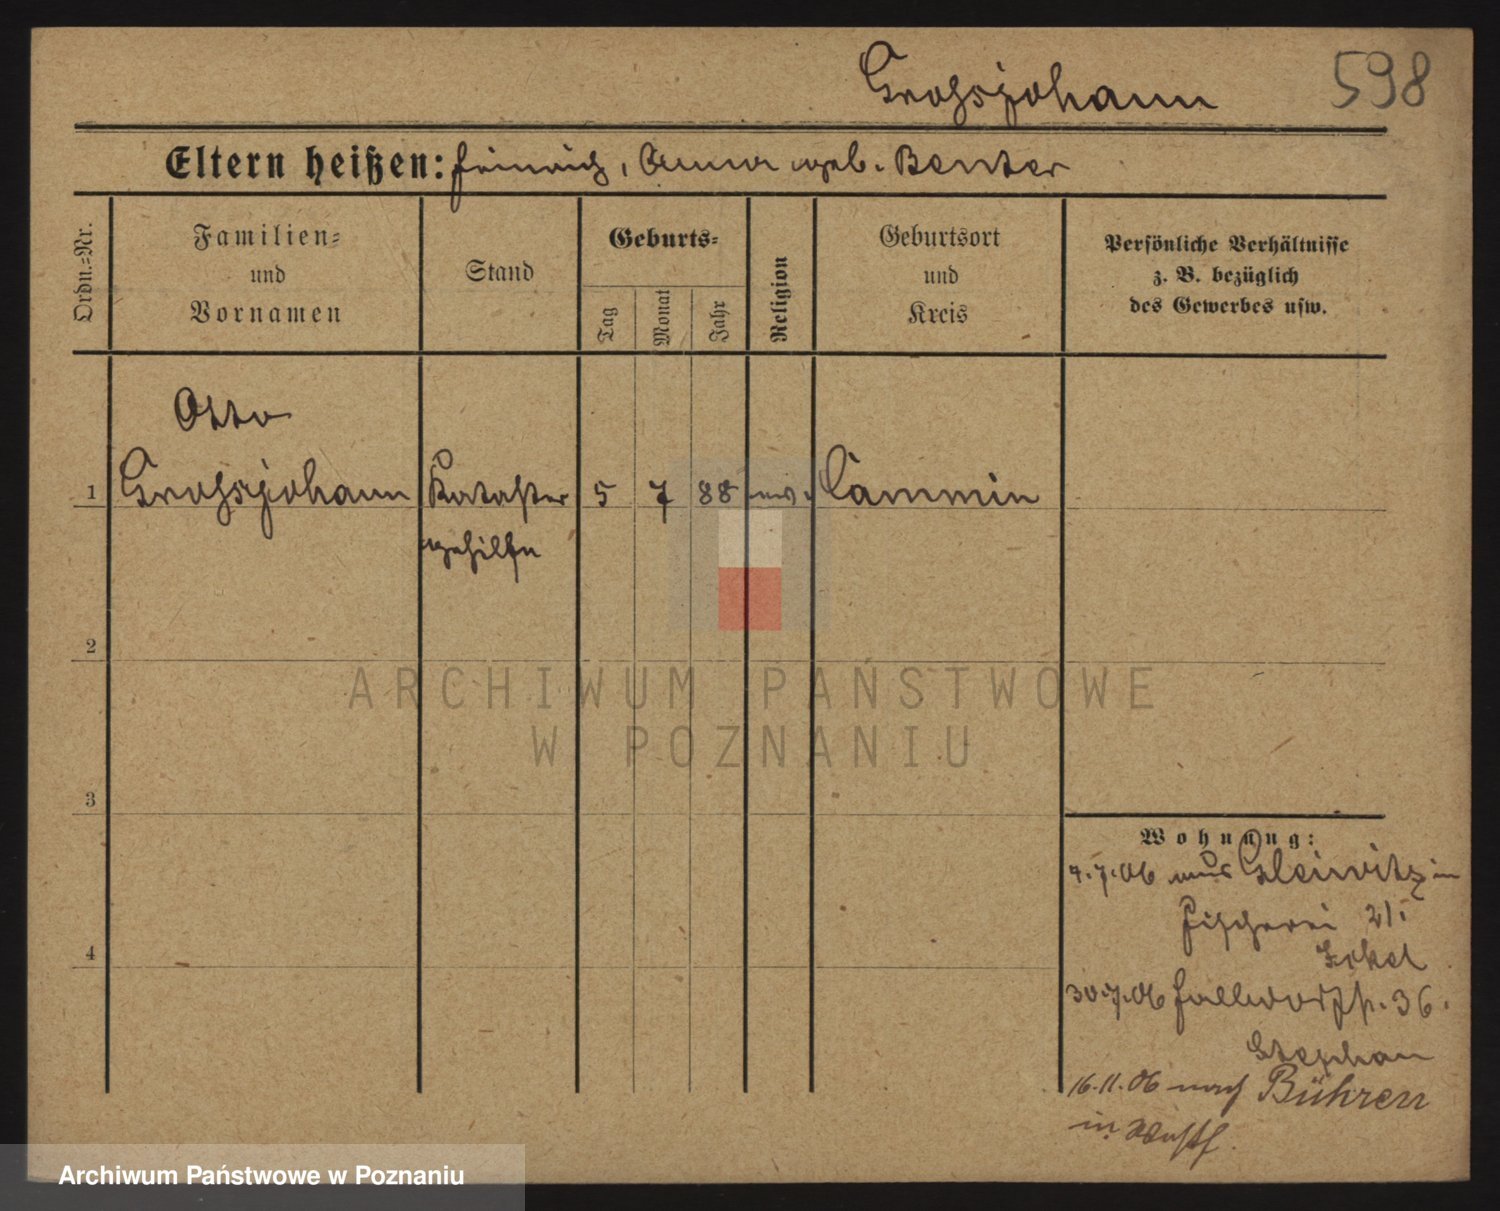 Grossjohann 598
Eltern heißen: Heinrich, Anna geb. Benter
Ordn.=Nr.
Familien=
und
Vornamen
Stand
Geburts=
Tag
Monat
Jahr
Religion
Geburtsort
und
Kreis
Persönliche Verhältnisse
z. B. bezüglich
des Gewerbes usw.
Otto
1 Grossjohann Kataster 5 7 88 ev. Cammin
gehilfe
2
ARCHIWUM PAŃSTWOWE
W POZNANIU
3
Wohnung:
4.7.06 aus Gleiwitz in
Fischerei 21
4
30.7.06 Halldorfstr. 36.
Stephan
16.11.06 nach Bühren
in Westf.
Archiwum Państwowe w Poznaniu